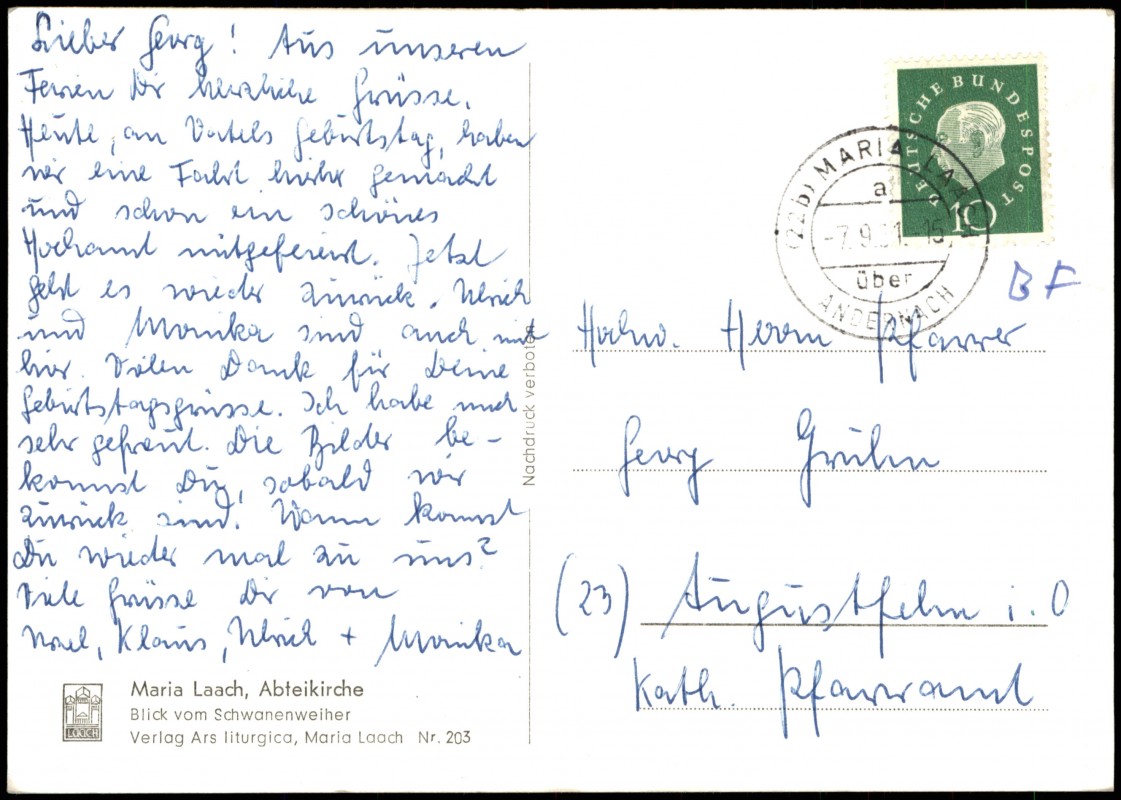 Lieber Georg! Aus unseren
Ferien Dir herzliche Grüsse.
Heute, an Vatels Geburtstag, haben
wir eine Fahrt hierher gemacht
und schon ein schönes
Hochamt mitgefeiert. Jetzt
geht es wieder zurück. Ulrich
und Monika sind auch mit
hier. Vielen Dank für Deine
Geburtstagsgrüsse. Ich habe mich
sehr gefreut. Die Bilder be-
kommst Du, sobald wir
zurück sind. Wann kommst
Du wieder mal zu uns?
Viele Grüsse Dir von
Klaus, Ulrich + Monika
Maria Laach, Abteikirche
Blick vom Schwanenweiher
Verlag Ars liturgica, Maria Laach Nr. 203
LAACH
Nachdruck verboten
DEUTSCHE BUNDESPOST
10
(22b) MARIA LAACH
a
-7.9.61.-15
über
ANDERNACH
BF
Hochw. Herrn Pfarrer
Georg
(23) Augustfehn i. O
Kath. Pfarramt